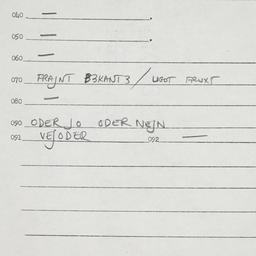 040 — .
050 — .
060 —
070 FRAJNT B3KANT3 / LIGT FRWXT
080 —
090 ODER JO ODER NEJN
091 VEJODER 092 —